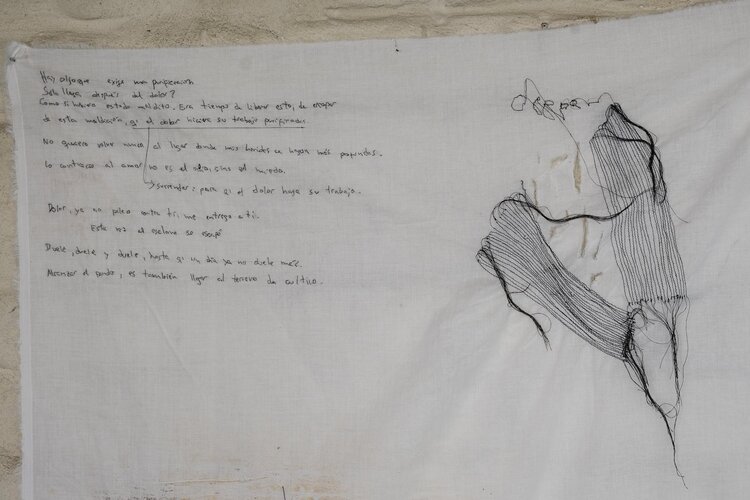 Hay algo que exige una purificación
Solo llega después del dolor?
Como si hubiera estado maldito. Era tiempo de liberar esto, de escapar
de esta maldición, q' el dolor hiciera su trabajo purificador.
No quiero volver nunca al lugar donde mis heridas se hagan más profundas.
Lo contrario al amor no es el odio, sino el miedo.
Surrender: para q' el dolor haga su trabajo.
Dolor, ya no peleo contra ti, me entrego a ti.
Esta vez el esclavo se escapó
Duele, duele y duele, hasta q' un día ya no duele más.
Alcanzar el fondo, es también llegar al terreno de cultivo.